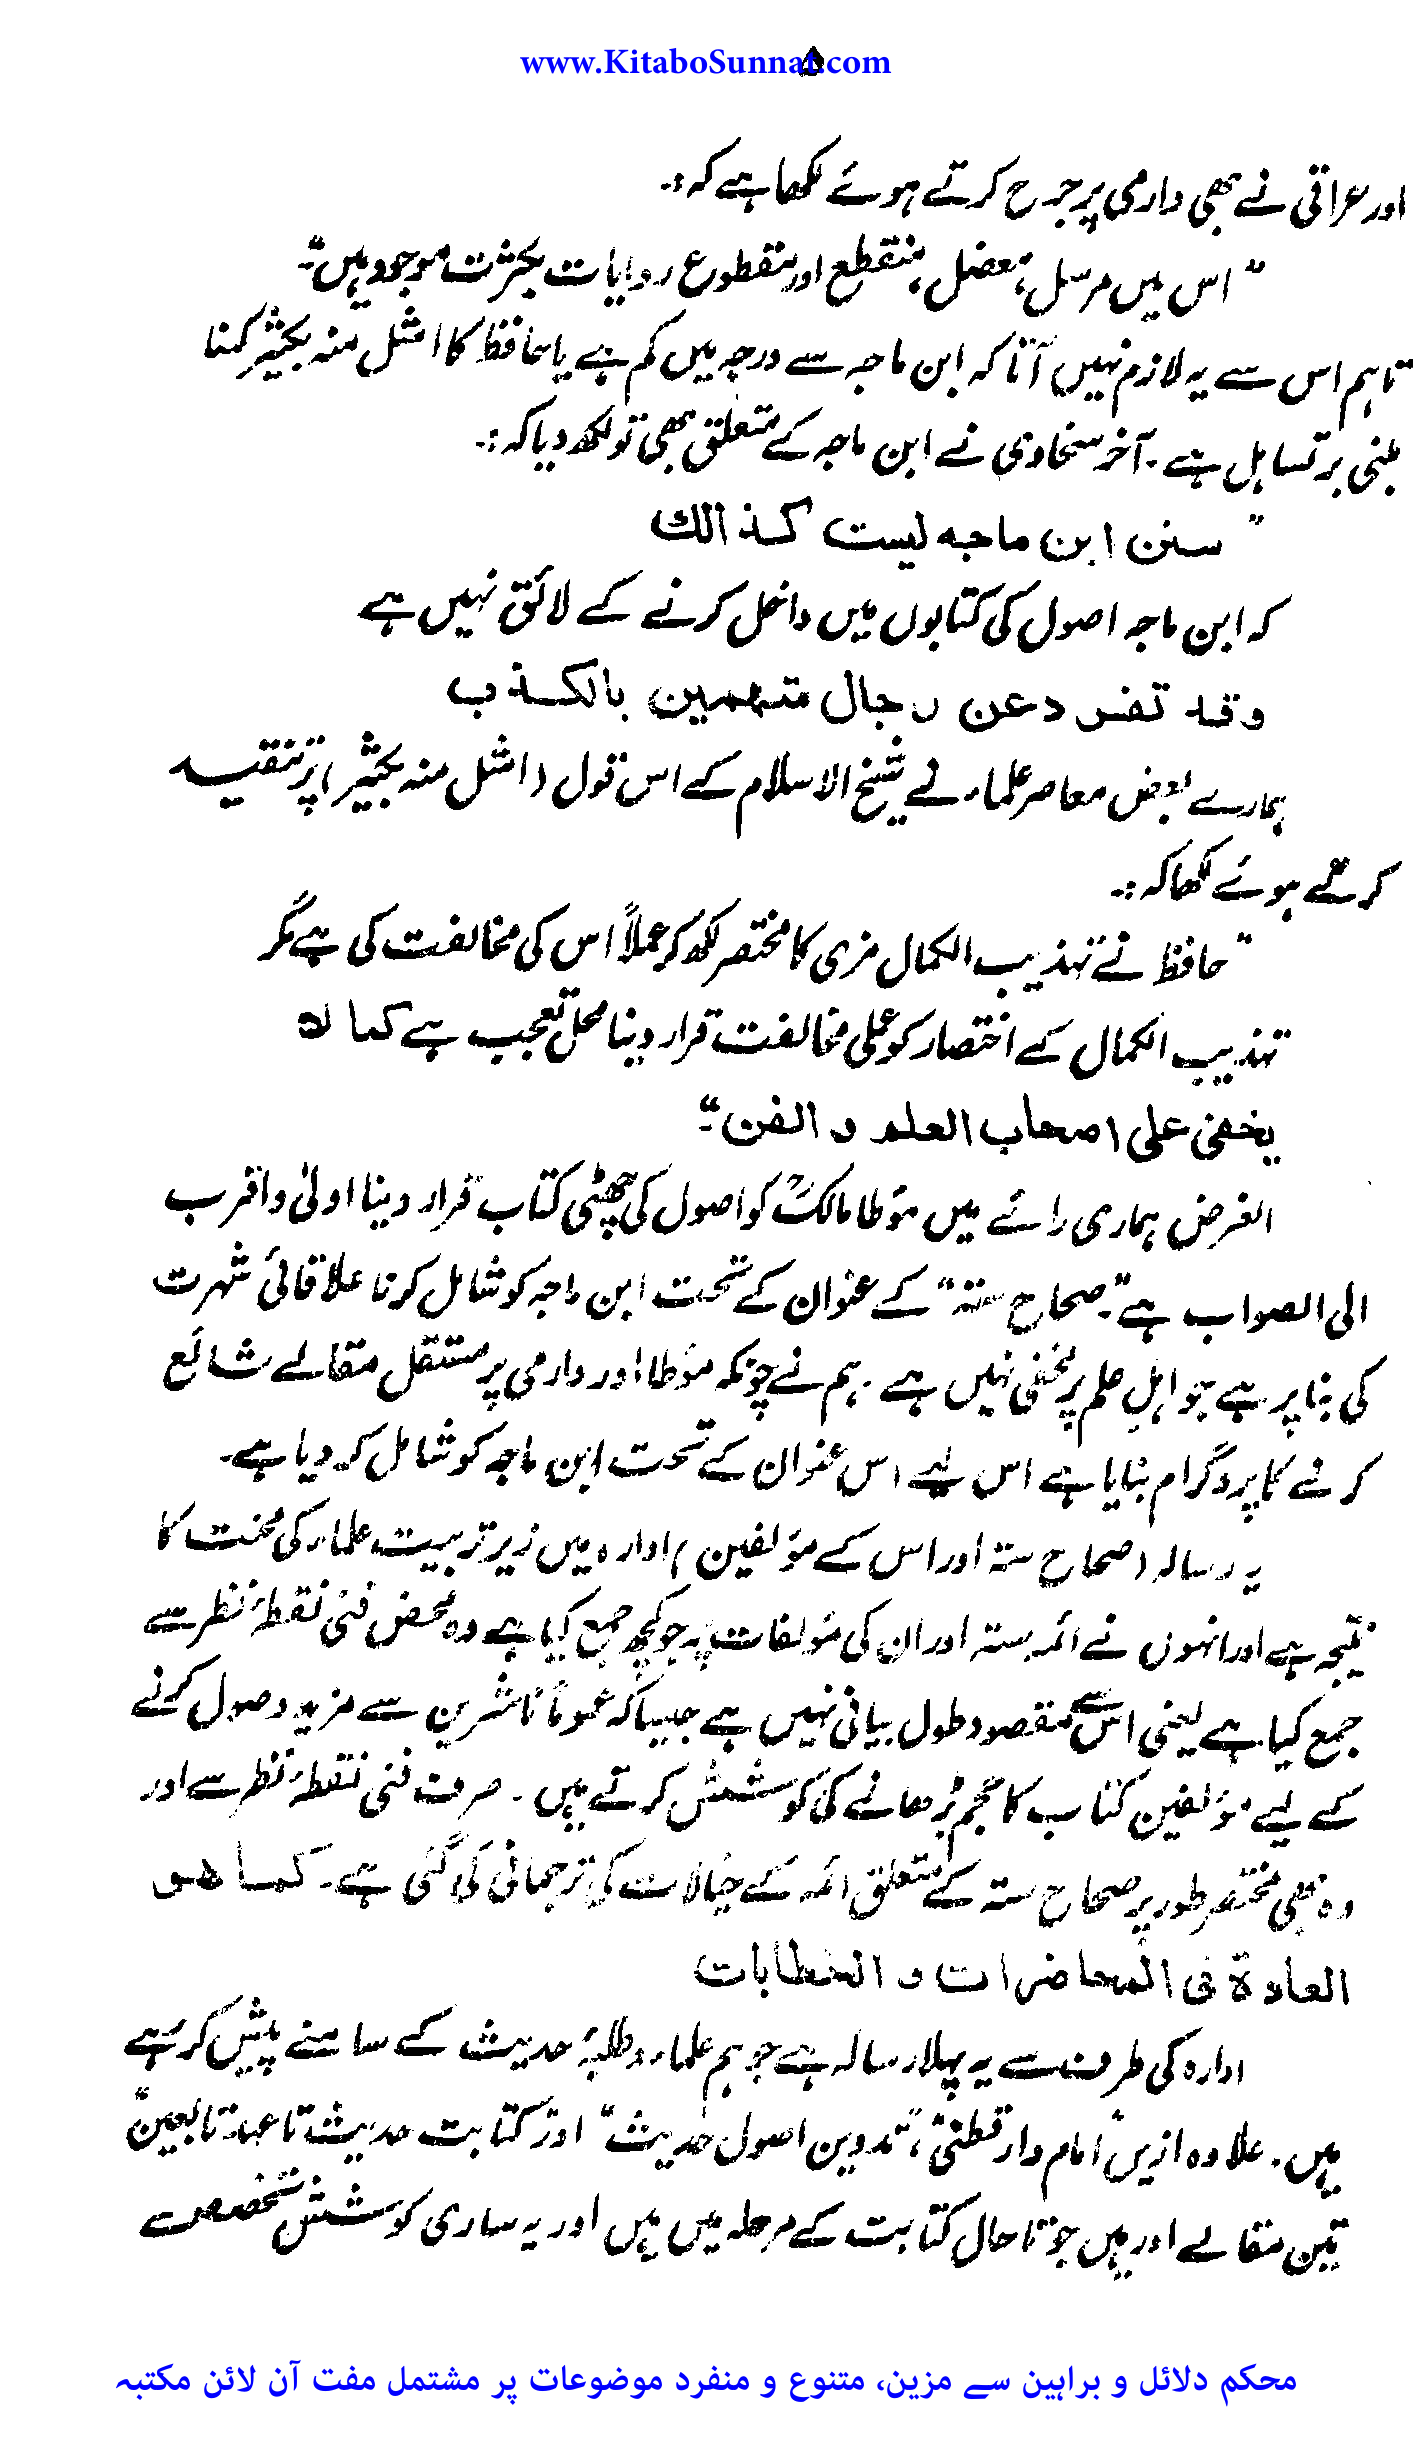 www.KitaboSunnat.com
۵
اور عراقی نے بھی دارمی پر جرح کرتے ہوئے لکھا ہے کہ :۔
"اس میں مرسل، معضل، منقطع اور مقطوع روایات بکثرت موجود ہیں"۔
تاہم اس سے یہ لازم نہیں آتا کہ ابن ماجہ سے درجہ میں کم ہے یا حافظ کا امثل منہ بکثیر کہنا
مبنی بر تساہل ہے۔ آخر سخاوی نے ابن ماجہ کے متعلق بھی تو لکھ دیا کہ :۔
" سنن ابن ماجه ليست كذالك
کہ ابن ماجہ اصول کی کتابوں میں داخل کرنے کے لائق نہیں ہے
وقد تفرد عن رجال متهمين بالكذب
ہمارے بعض معاصر علماء نے شیخ الاسلام کے اس قول (امثل منہ بکثیر) پر تنقید
کرتے ہوئے لکھا کہ :۔
"حافظ نے تہذیب الکمال مزی کا مختصر لکھ کر عملاً اس کی مخالفت کی ہے مگر
تہذیب الکمال کے اختصار کو عملی مخالفت قرار دینا محل تعجب ہے کما لا
یخفی علی اصحاب العلم و الفن"۔
الغرض ہماری رائے میں مؤطا مالکؒ کو اصول کی چھٹی کتاب قرار دینا اولیٰ و اقرب
الی الصواب ہے۔ "صحاح ستہ" کے عنوان کے تحت ابن ماجہ کو شامل کرنا علاقائی شہرت
کی بنا پر ہے جو اہل علم پر مخفی نہیں ہے۔ ہم نے چونکہ مؤطا اور دارمی پر مستقل مقالے شائع
کرنے کا پروگرام بنایا ہے اس لیے اس عنوان کے تحت ابن ماجہ کو شامل کر دیا ہے۔
یہ رسالہ (صحاح ستہ اور اس کے مؤلفین) ادارہ میں زیر تربیت علماء کی محنت کا
نتیجہ ہے اور انہوں نے ائمہ ستہ اور ان کی مؤلفات پر جو کچھ جمع کیا ہے وہ محض فنی نقطۂ نظر سے
جمع کیا ہے یعنی اس سے مقصود طول بیانی نہیں ہے جیسا کہ عموماً ناشرین سے مزید وصول کرنے
کے لیے مؤلفین کتاب کا حجم بڑھانے کی کوشش کرتے ہیں۔ صرف فنی نقطۂ نظر سے اور
وہ بھی مختصر طور پر صحاح ستہ کے متعلق ائمہ کے خیالات کی ترجمانی کی گئی ہے۔ کما هو
العادة فی المحاضرات و الخطابات
ادارہ کی طرف سے یہ پہلا رسالہ ہے جو ہم علماء و طلبۂ حدیث کے سامنے پیش کر رہے
ہیں۔ علاوہ ازیں "امام دارقطنیؒ"، "تدوین اصول حدیث" اور "کتابت حدیث تا عہد تابعین"
تین مقالے اور ہیں جو تا حال کتابت کے مرحلہ میں ہیں اور یہ ساری کوشش تخصص سے
محکم دلائل و براہین سے مزین، متنوع و منفرد موضوعات پر مشتمل مفت آن لائن مکتبہ